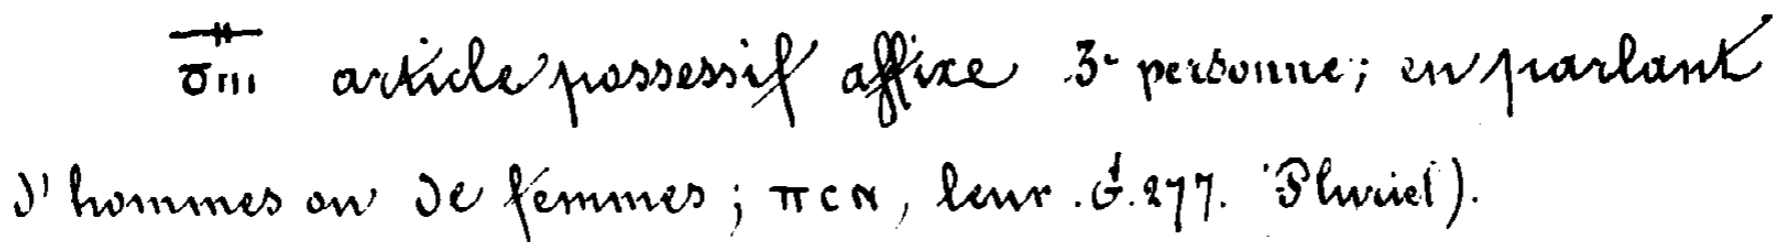 article possessif affixe 3e personne; en parlant
d'hommes ou de femmes; ⲡⲥⲛ, leur. G. 277. Pluriel).